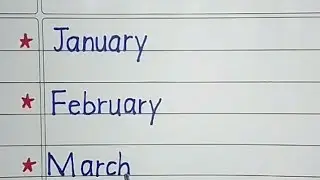 ★ January
★ February
★ March